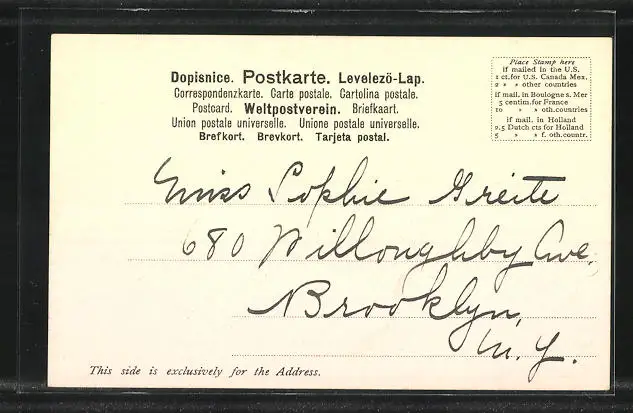 Dopisnice. Postkarte. Levelezö-Lap.
Correspondenzkarte. Carte postale. Cartolina postale.
Postcard. Weltpostverein. Briefkaart.
Union postale universelle. Unione postale universelle.
Brefkort. Brevkort. Tarjeta postal.
Place Stamp here
if mailed in the U.S.
1 ct. for U.S. Canada Mex.
2 " " other countries
if mail. in Boulogne s. Mer
5 centim. for France
10 " " oth. countries
if mail. in Holland
2.5 Dutch cts for Holland
5 " " f. oth. countr.
Miss Sophie Greite
680 Willoughby Ave.
Brooklyn,
N. Y.
This side is exclusively for the Address.